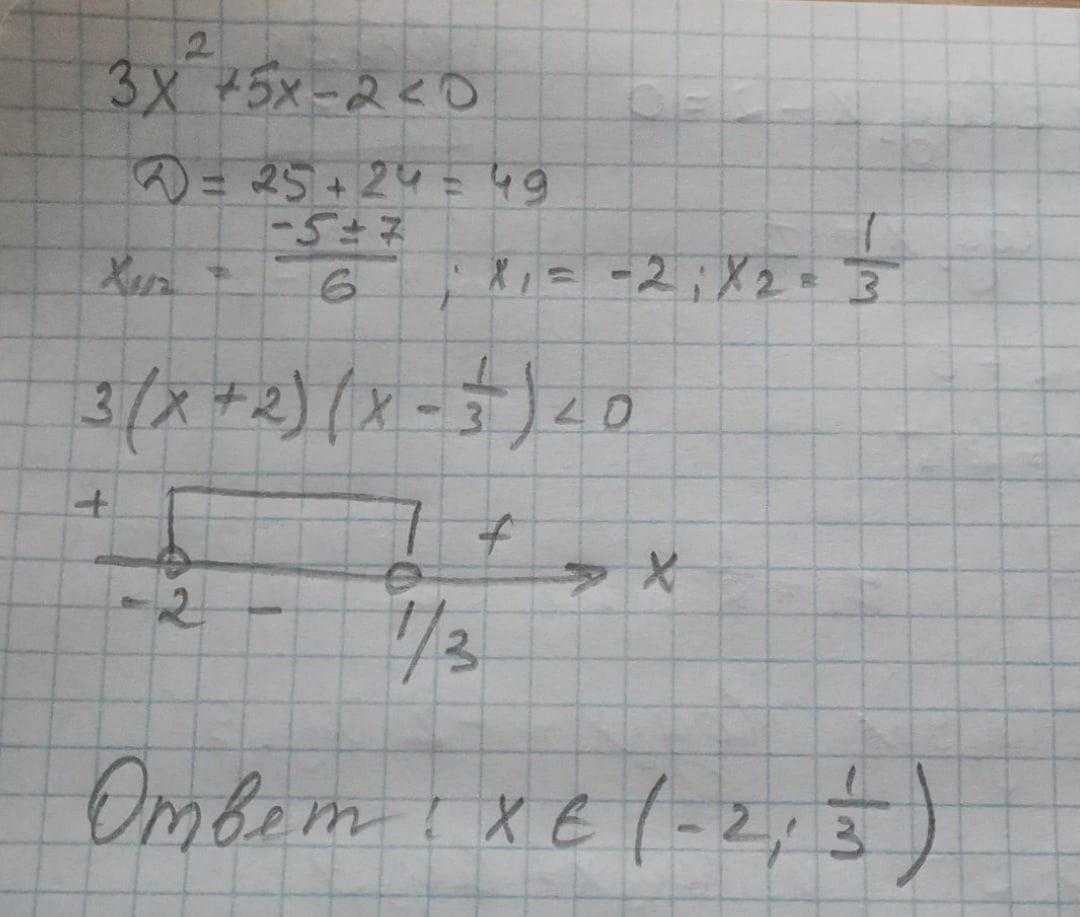 3x² + 5x - 2 < 0
D = 25 + 24 = 49
x₁,₂ = (-5 ± 7)/6 ; x₁ = -2 ; x₂ = 1/3
3(x + 2)(x - 1/3) < 0
+ +
x
-2 - 1/3
Ответ : x ∈ (-2; 1/3)